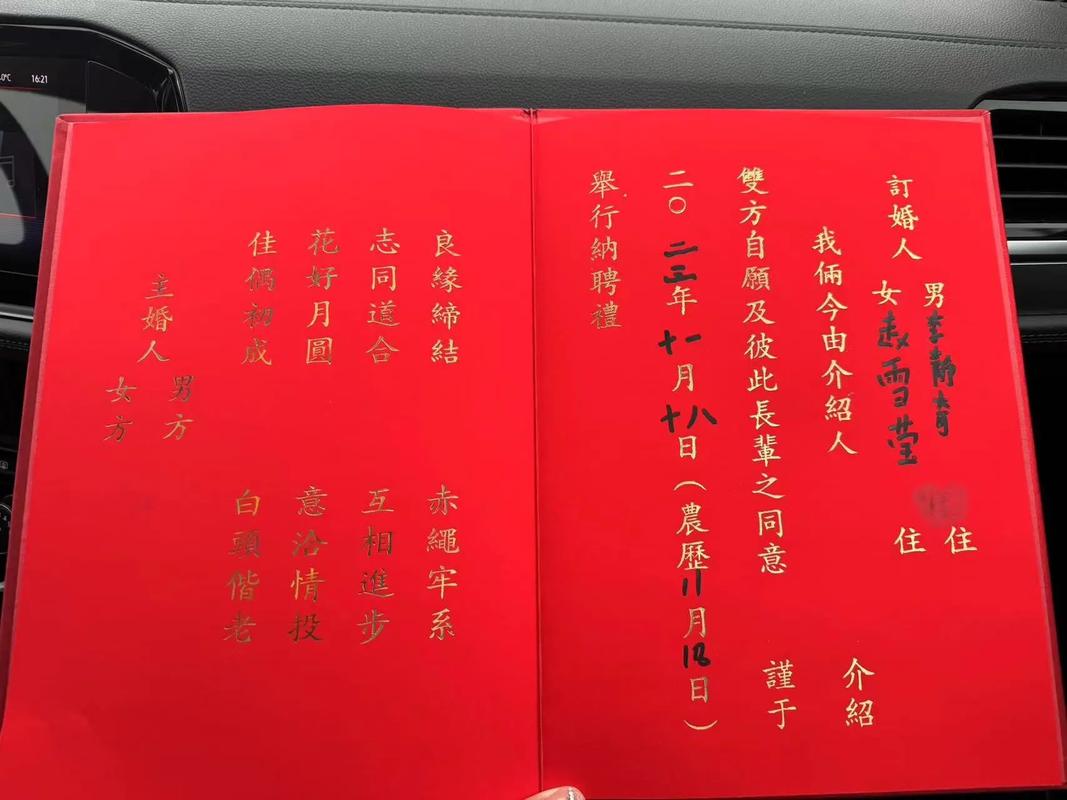 .0°C 16:21
訂婚人
男 李静 住
女 赵雪莹 住
我倆今由介紹人 介紹
雙方自願及彼此長輩之同意 謹于
二〇二三年十一月十八日(農歷11月18日)
舉行納聘禮
良緣締結 赤繩牢系
志同道合 互相進步
花好月圓 意洽情投
佳偶初成 白頭偕老
主婚人
男方
女方